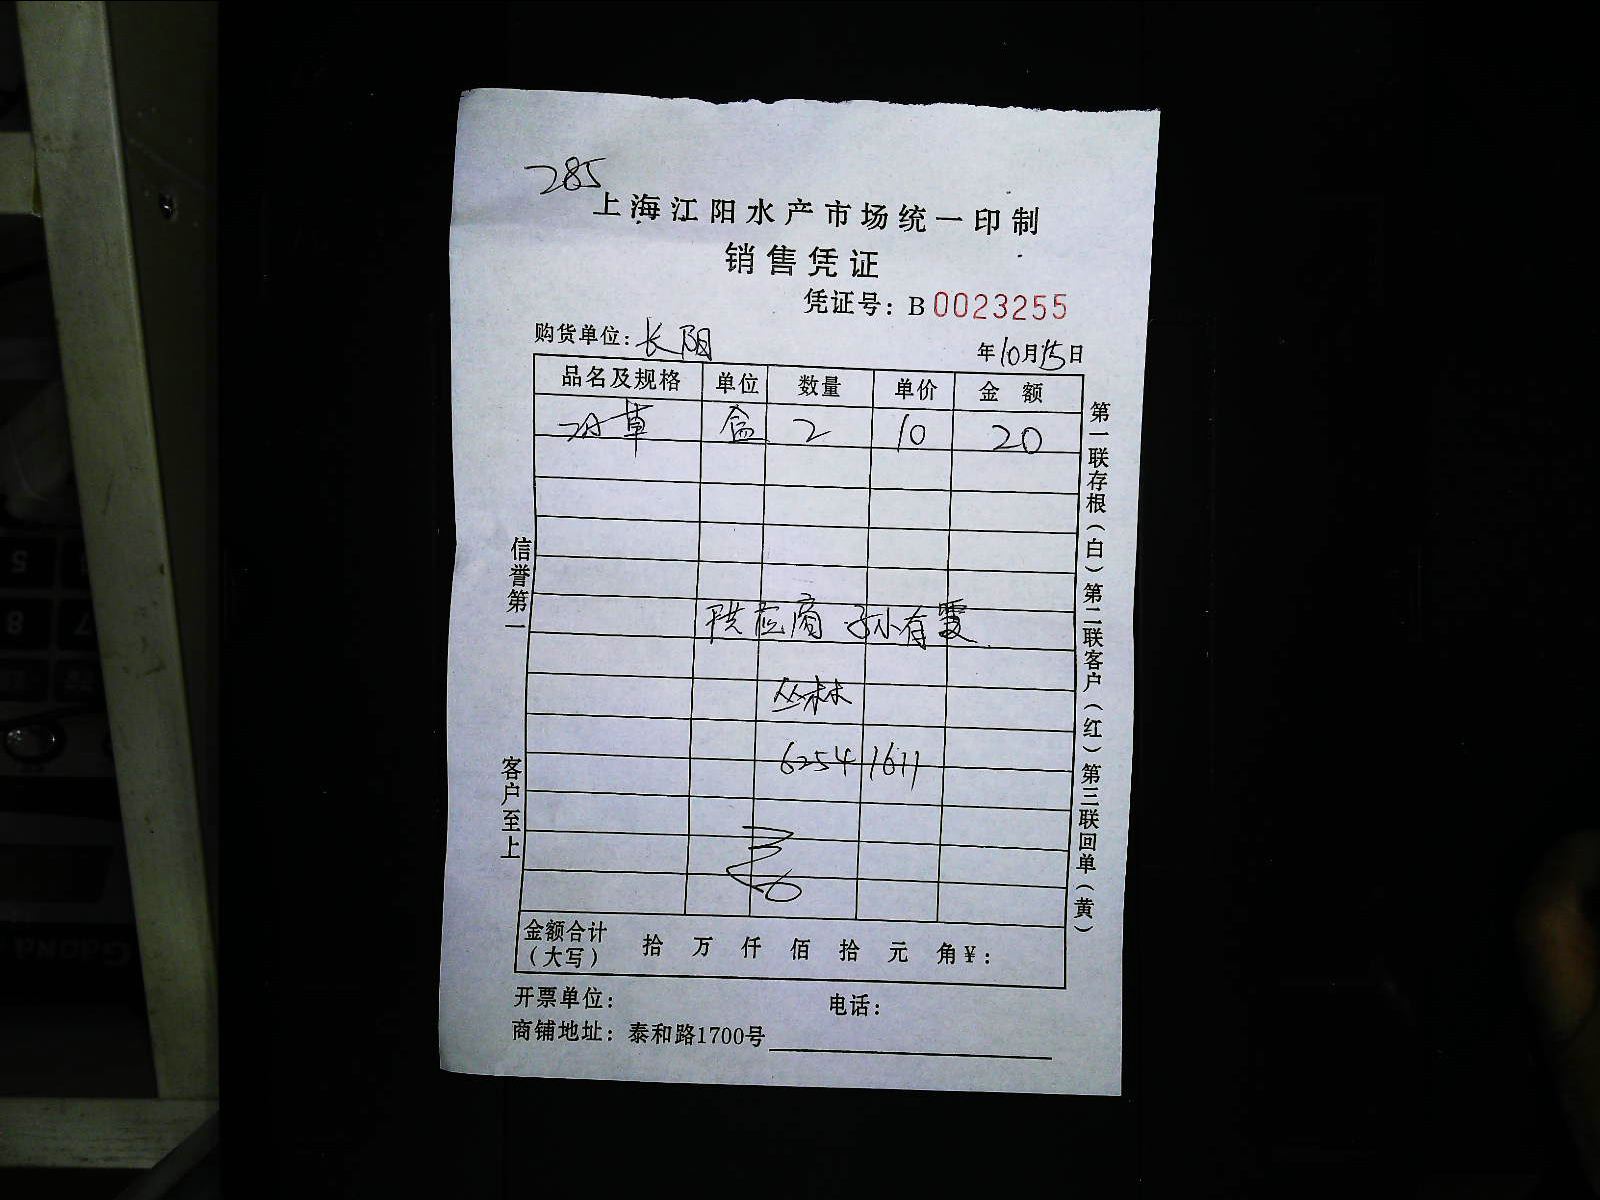 285
上海江阳水产市场统一印制
销售凭证
凭证号：B 0023255
购货单位：长阳
年10月15日
品名及规格 单位 数量 单价 金额
草 盒 2 10 20
供应商 孙有霞
丛林
6254 1611
金额合计（大写） 拾 万 仟 佰 拾 元 角 ¥：
开票单位： 电话：
商铺地址：泰和路1700号
信誉第一
客户至上
第一联存根（白）第二联客户（红）第三联回单（黄）